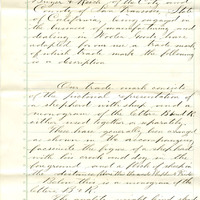 Bayer & Reich of the City and
County of San Francisco State
of California, being engaged in
the business of manufacturing and
dealing in Woolen Goods have
adopted for our use a trade mark
of which trade mark the following
is a description
Our trade mark consists
of the pictorial representation of
a shepherd with sheep and a
monogram of the letters B and R
either used together or separately.
These have generally been arranged
as shown in the accompanying
facsimile the figure of a shepherd
with his crook and dog in the
foreground and a flock of sheep in
the distance
Below this is a monogram of the
letters B & R.